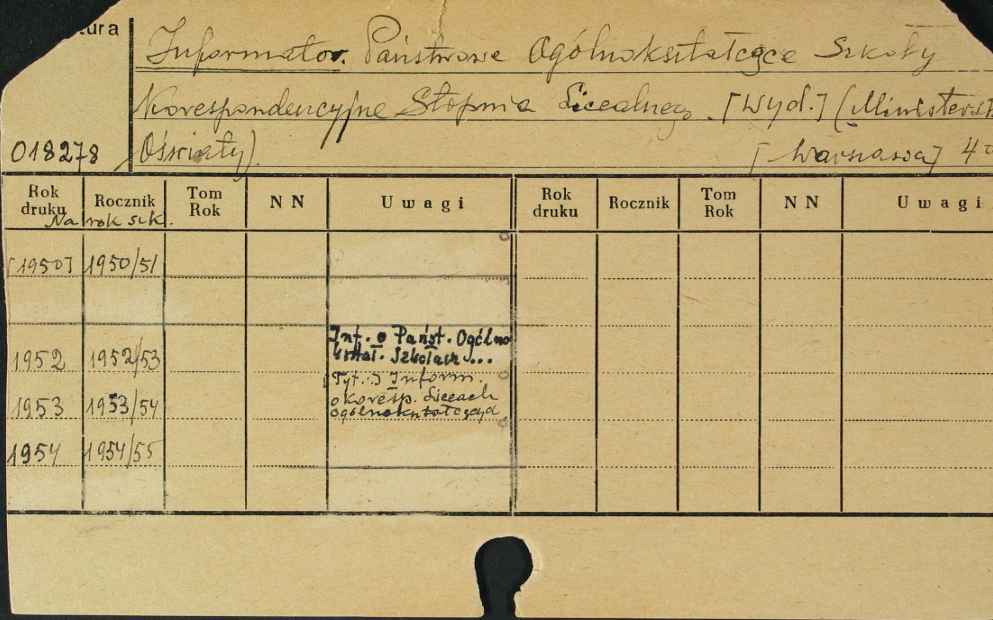 ura
Informator. Państwowe Ogólnokształcące Szkoły
Korespondencyjne Stopnia Licealnego. [Wyd.] (Minist
018278 Oświaty). [Warszawa] 4°
Rok druku Rocznik Tom Rok N N Uwagi Rok druku Rocznik Tom Rok N N Uwagi
Na rok szk.
[1950] 1950/51
Inf. o Państ. Ogólno
1952 1952/53 kształ. Szkołach...
[Tyt.:] Inform.
1953 1953/54 o Koresp. Liceach
ogólnokształcących
1954 1954/55